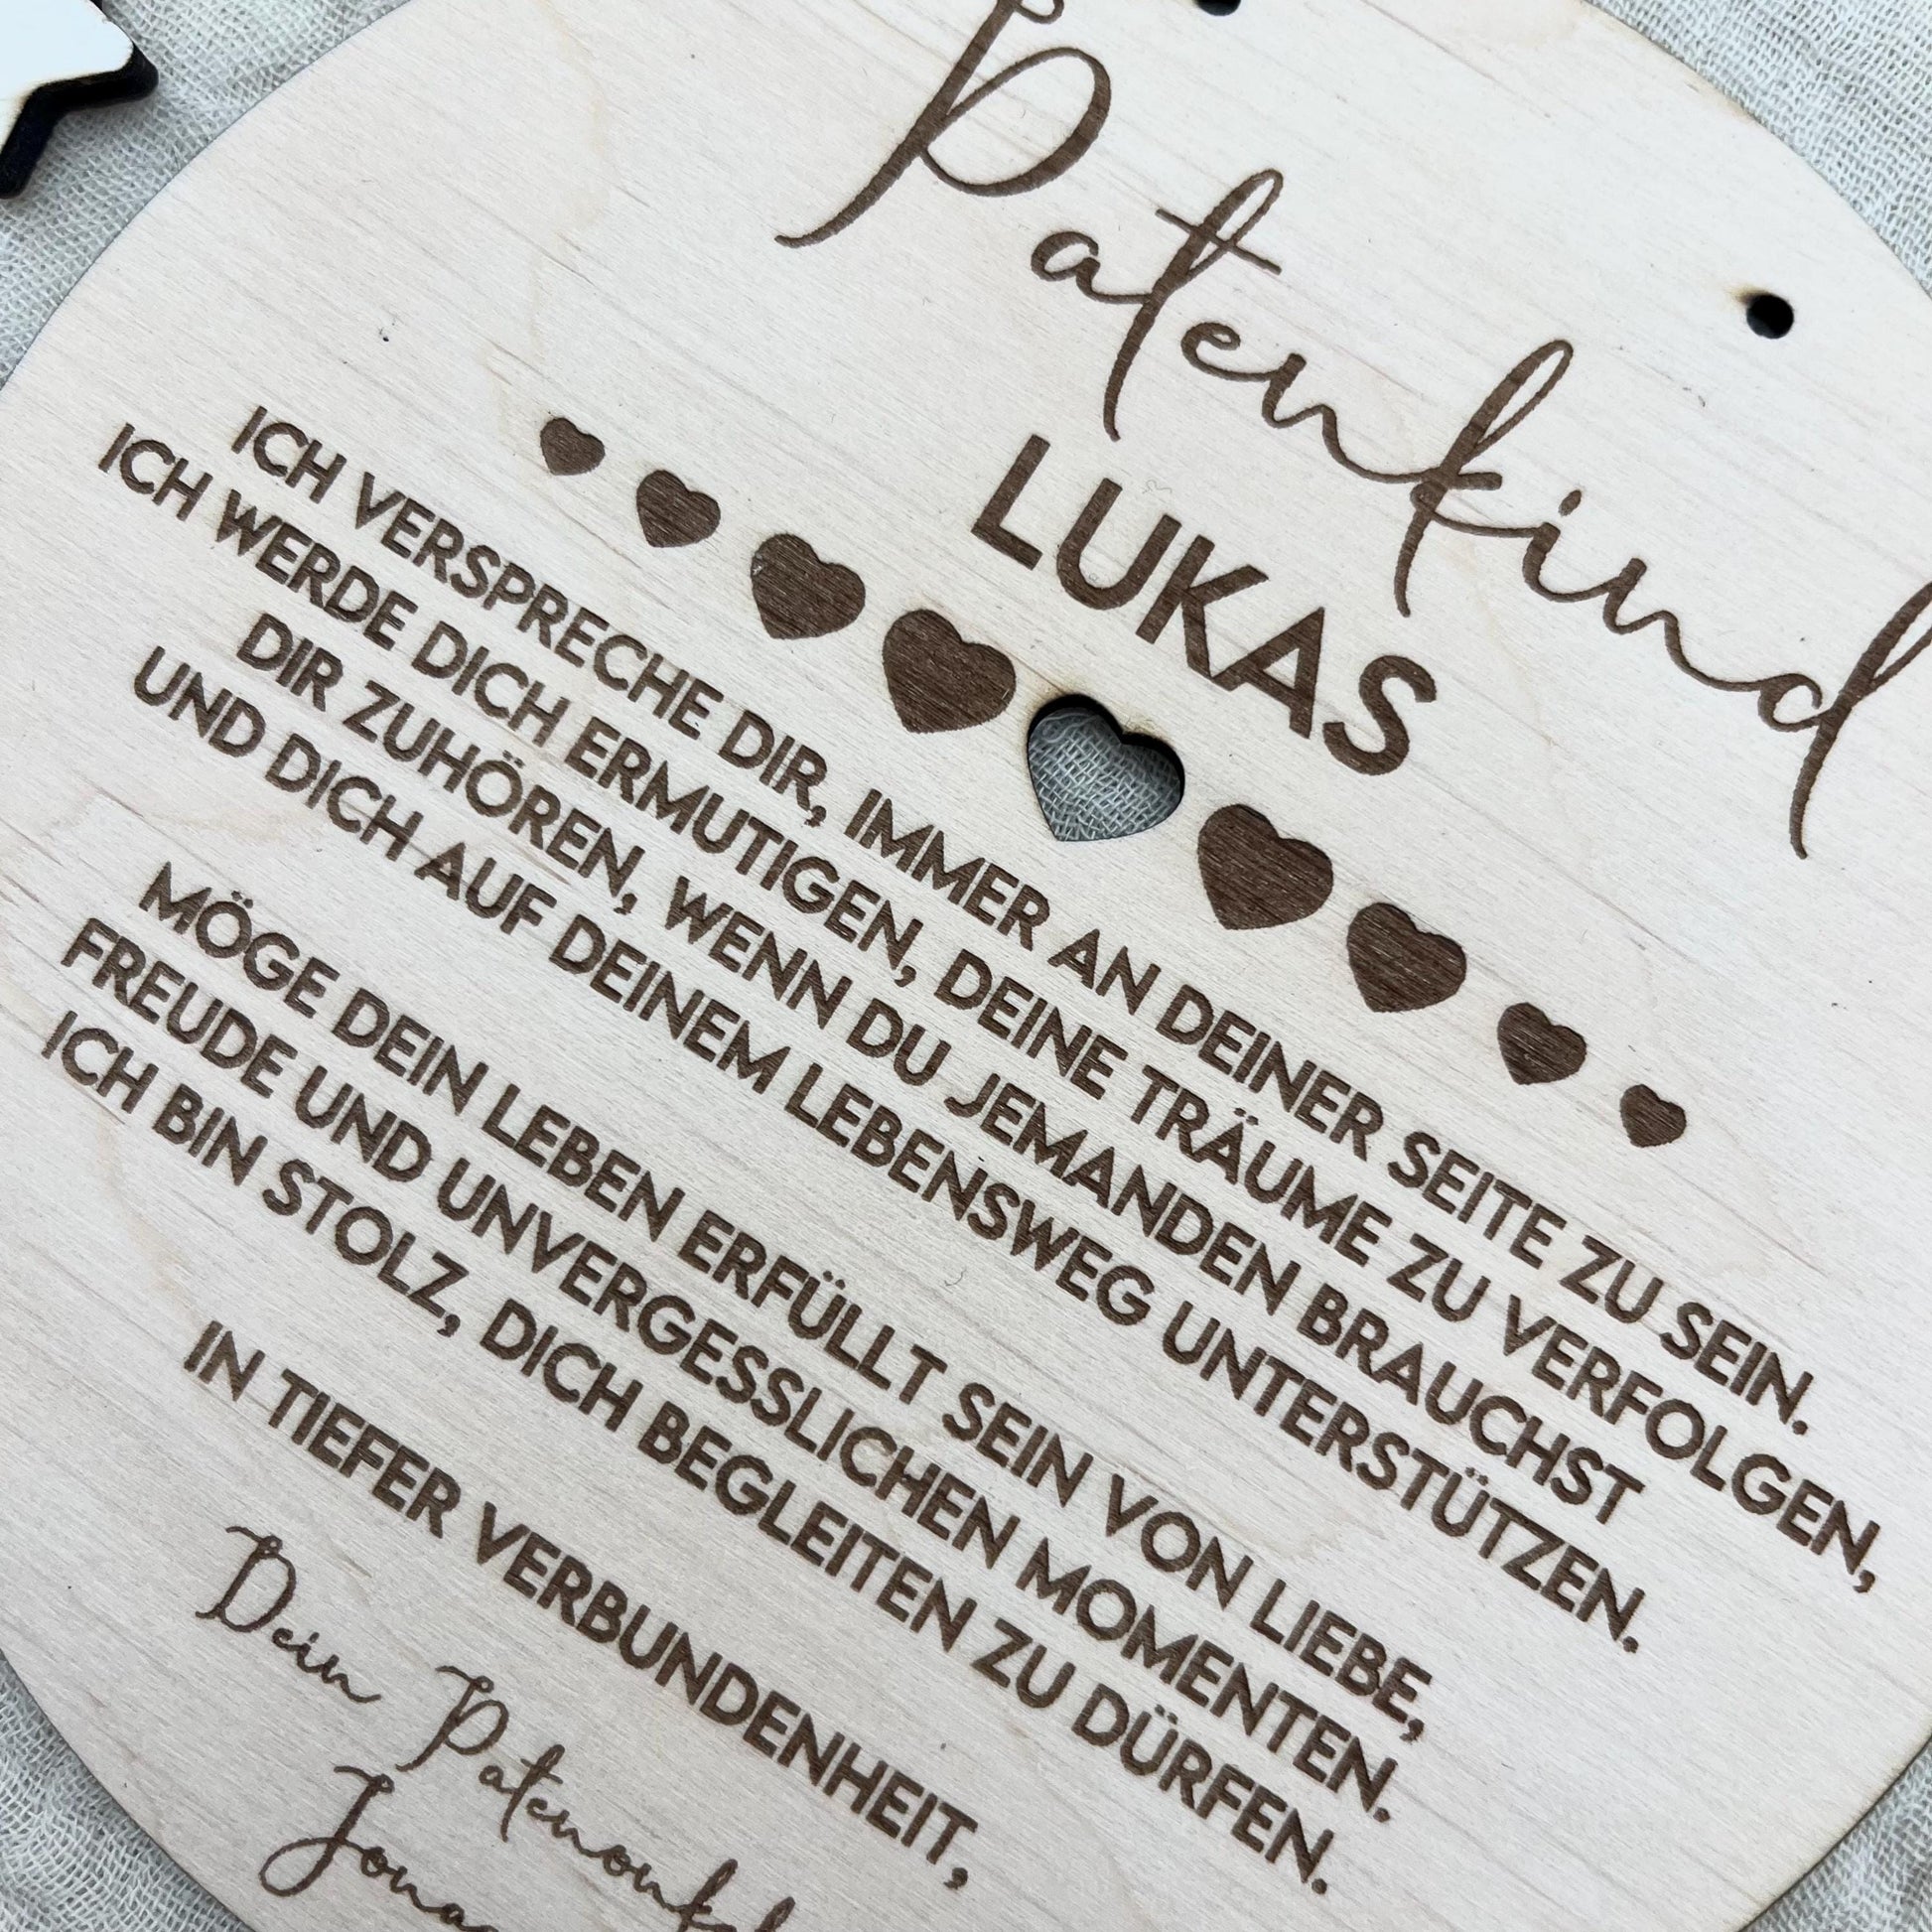 Patenkind
LUKAS
ICH VERSPRECHE DIR, IMMER AN DEINER SEITE ZU SEIN.
ICH WERDE DICH ERMUTIGEN, DEINE TRÄUME ZU VERFOLGEN,
DIR ZUHÖREN, WENN DU JEMANDEN BRAUCHST
UND DICH AUF DEINEM LEBENSWEG UNTERSTÜTZEN.
MÖGE DEIN LEBEN ERFÜLLT SEIN VON LIEBE,
FREUDE UND UNVERGESSLICHEN MOMENTEN.
ICH BIN STOLZ, DICH BEGLEITEN ZU DÜRFEN.
IN TIEFER VERBUNDENHEIT,
Dein Patenonkel